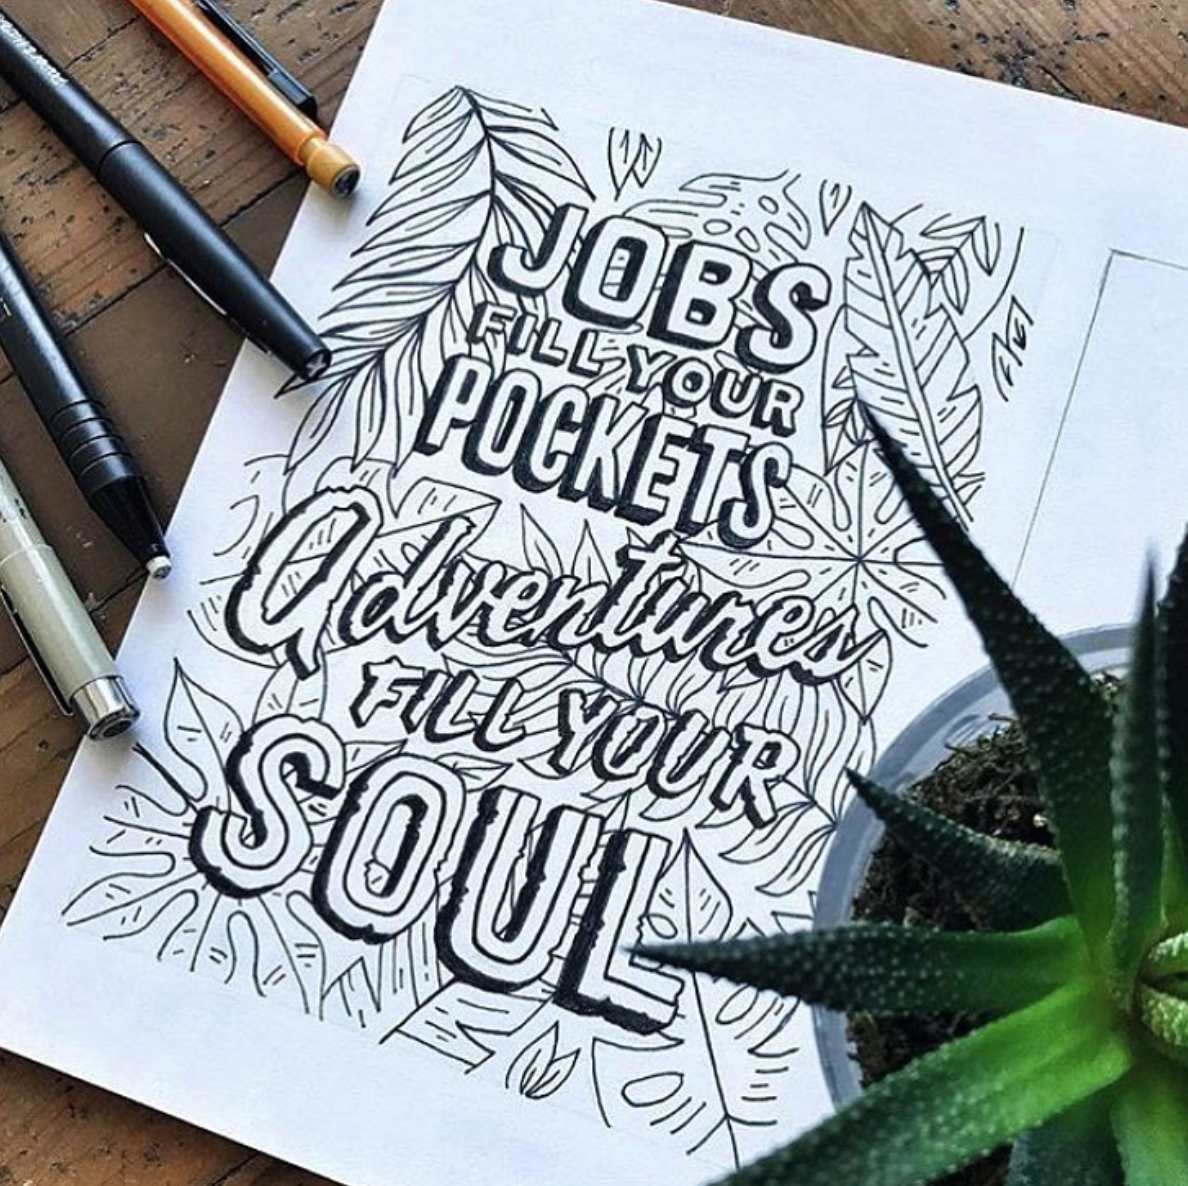 JOBS
FILL YOUR
POCKETS
Adventures
FILL YOUR
SOUL